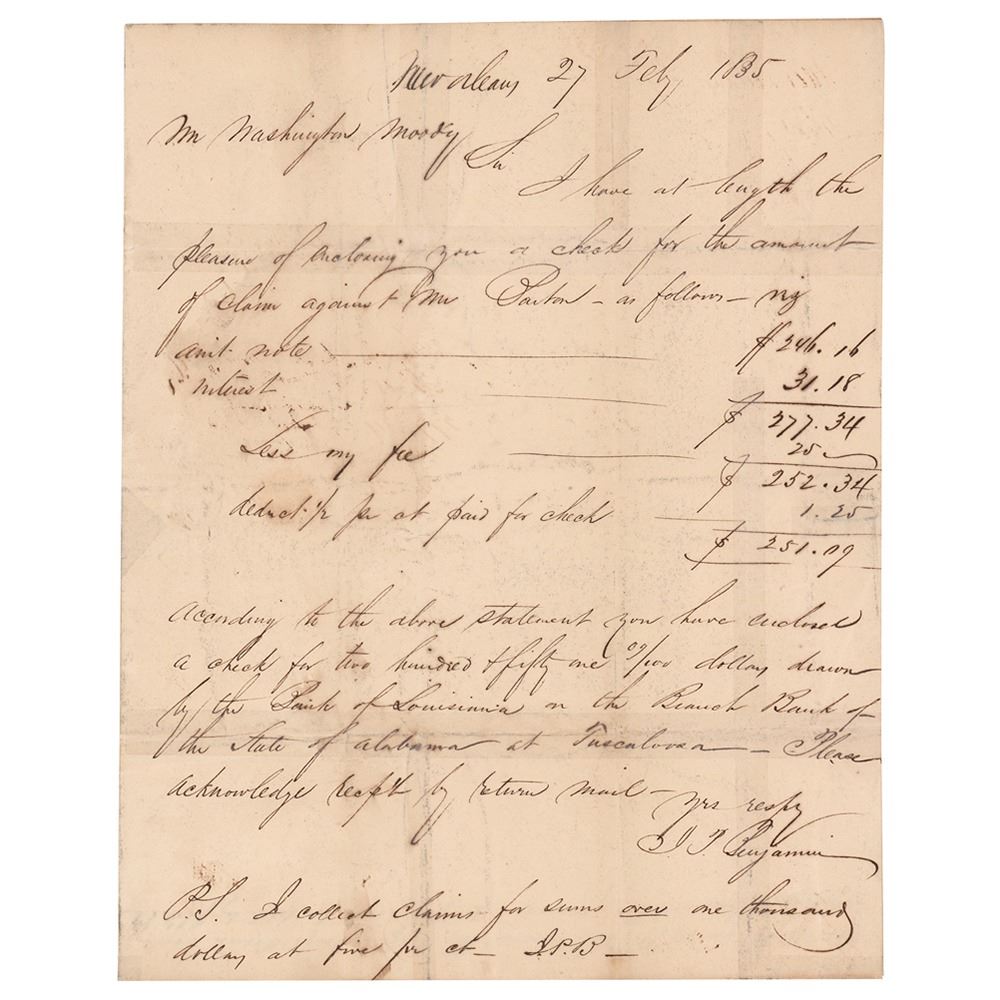 New Orleans 27 Feby 1835
Mr Washington Moody
Sir
I have at length the
pleasure of enclosing you a check for the amount
of claim against Mr Barton – as follows –
amt note — $ 246.16
Interest — 31.18
$ 277.34
Less my fee — 25
$ 252.34
deduct 1/2 pr ct paid for check — 1.25
$ 251.09
According to the above statement you have enclosed
a check for two hundred & fifty one 09/100 dollars drawn
by the Bank of Louisiania on the Branch Bank of
the State of Alabama at Tuscaloosa – Please
acknowledge recept by return mail –
yrs respy
J. P. Benjamin
P.S. I collect claims for sums over one thousand
dollars at five pr ct – J.P.B –